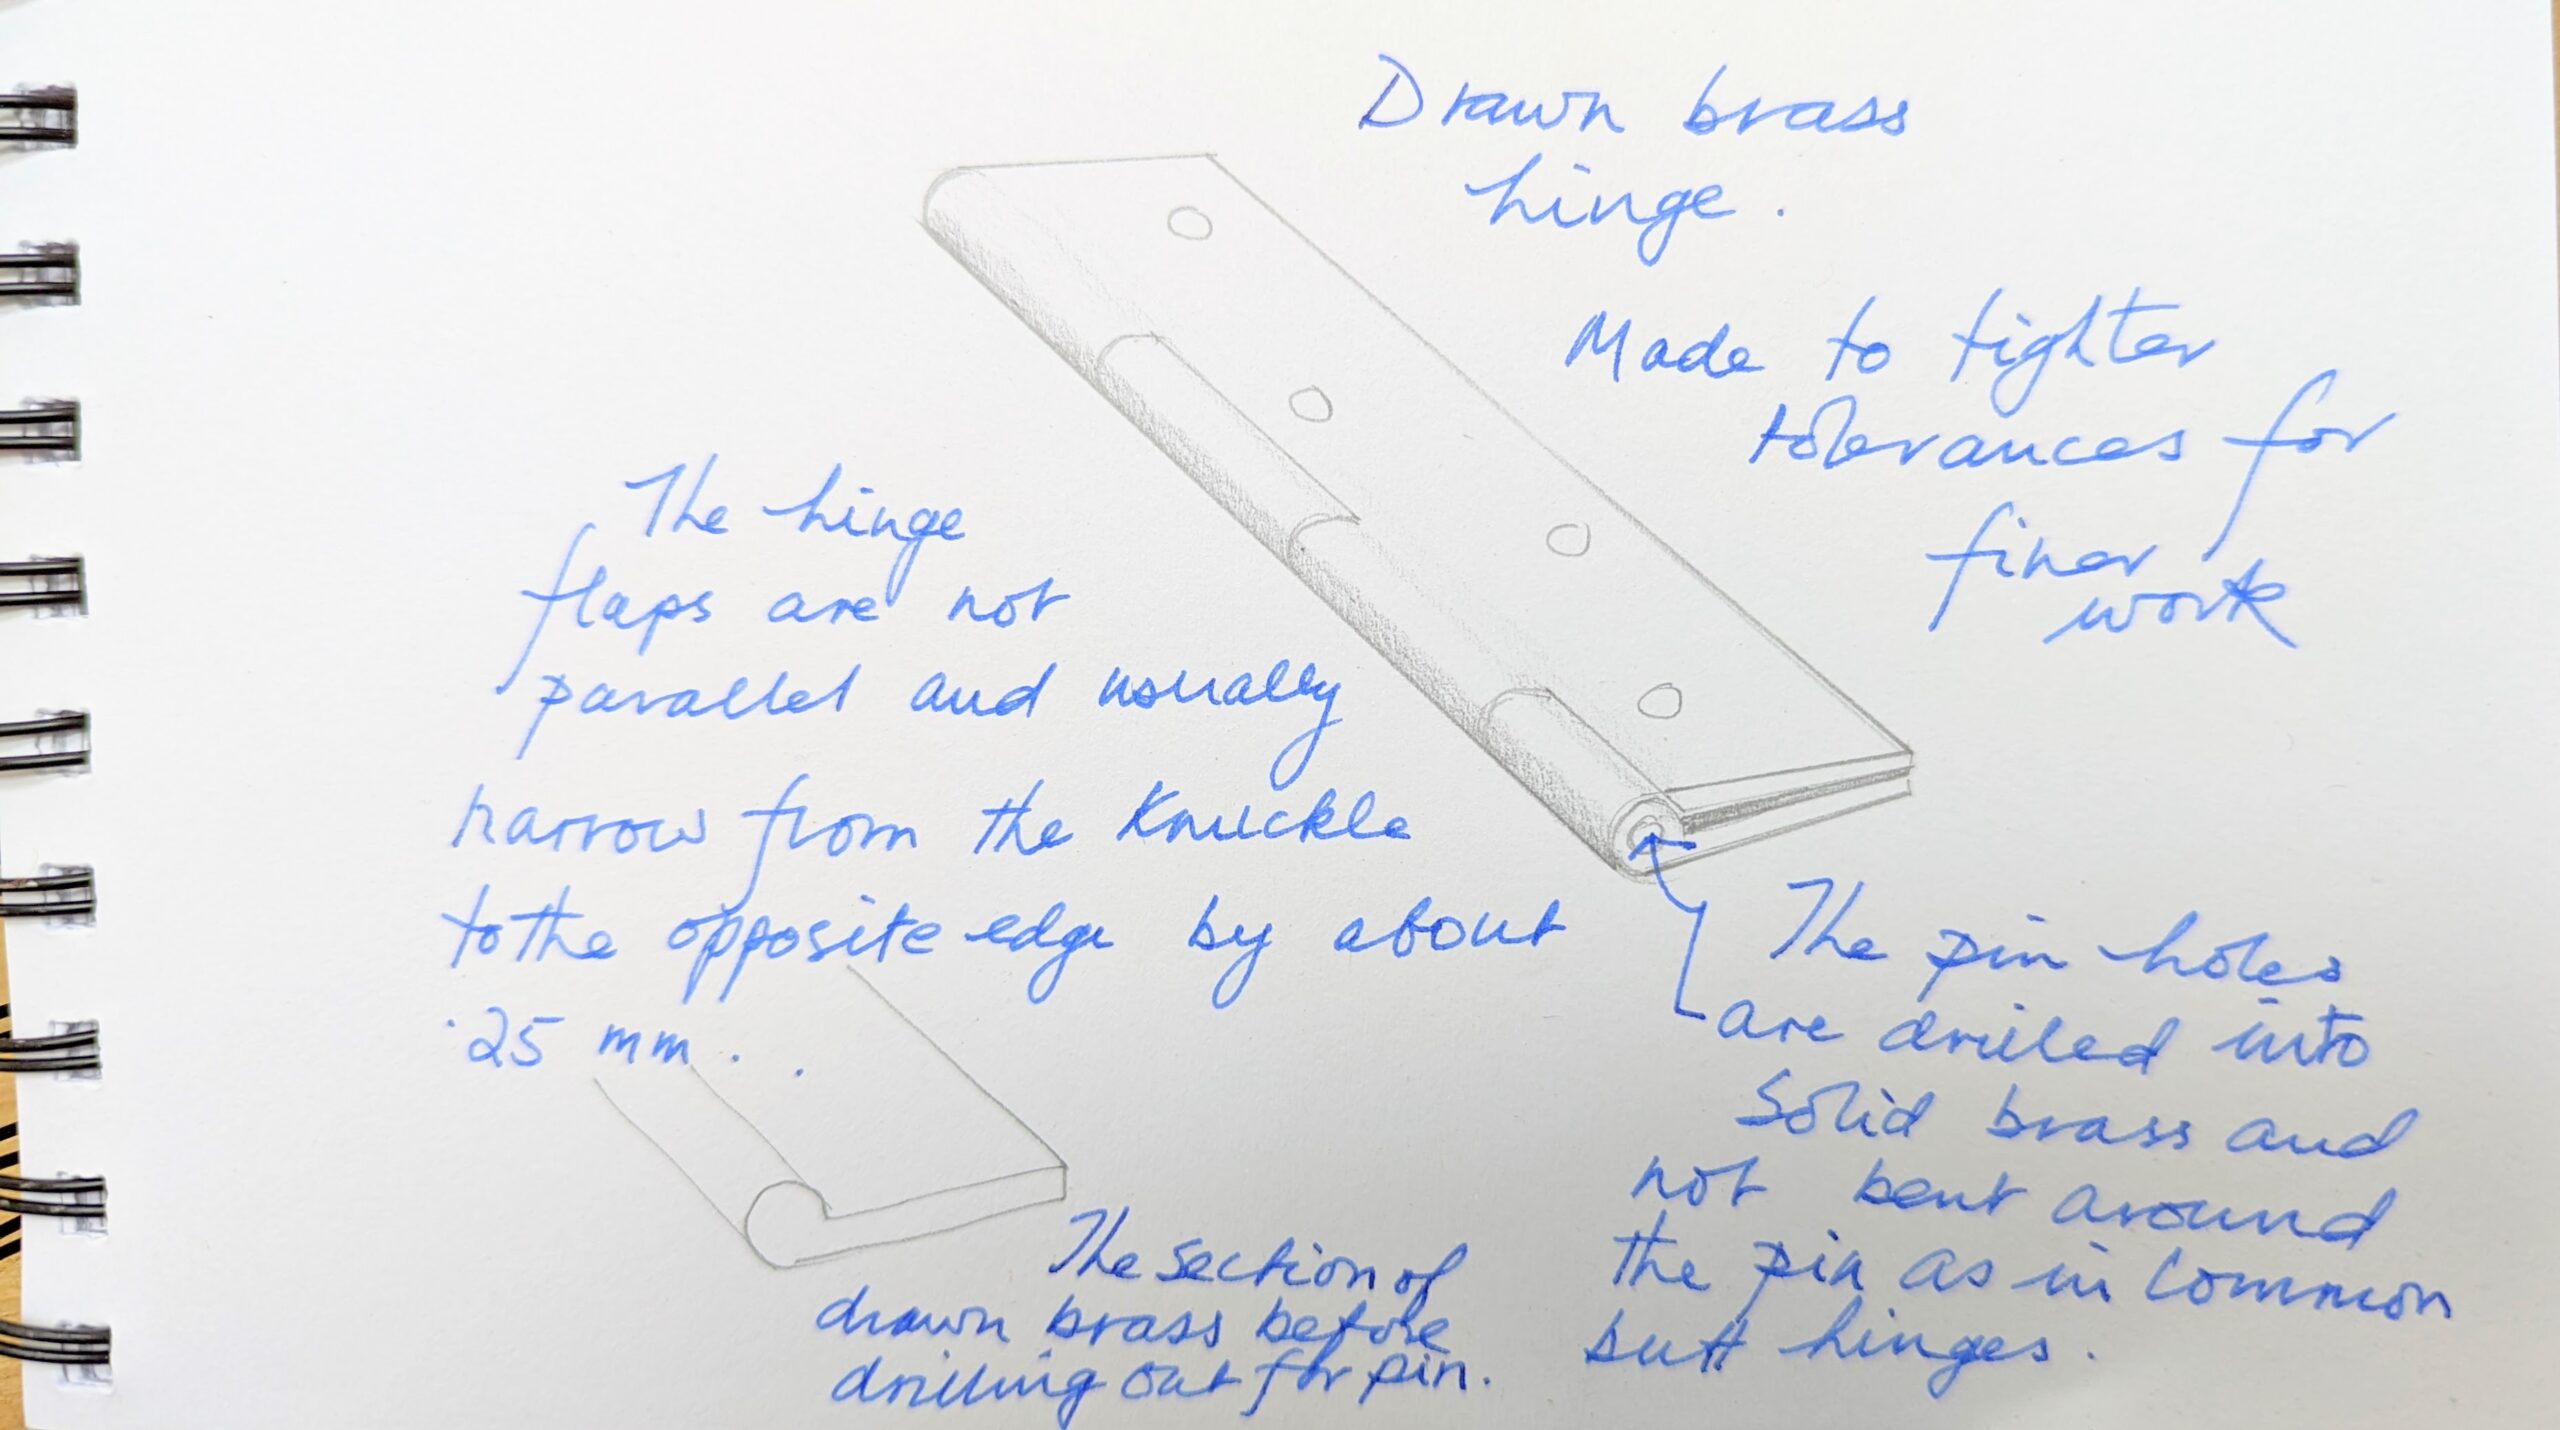 Drawn brass
hinge.
Made to tighter
tolerances for
finer
work
The hinge
flaps are not
parallel and usually
narrow from the knuckle
to the opposite edge by about
.25 mm.
The pin holes
are drilled into
Solid brass and
not bent around
the pin as in Common
butt hinges.
The section of
drawn brass before
drilling out for pin.